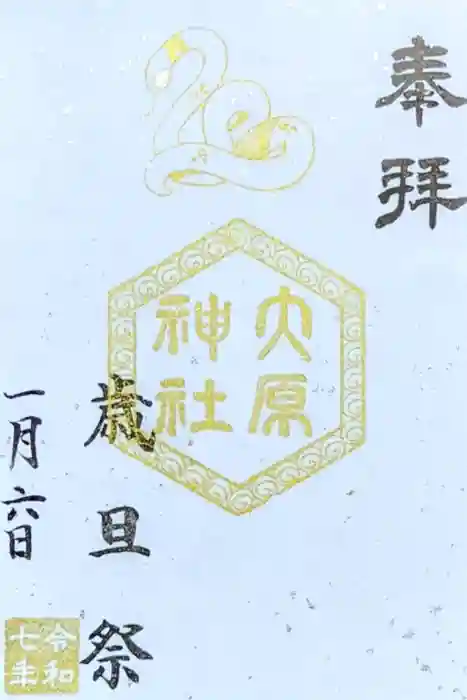 奉拝
大原
神社
歳旦祭
一月六日
令和
七年